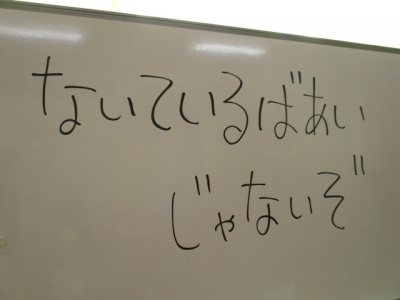 ないているばあい
じゃないぞ